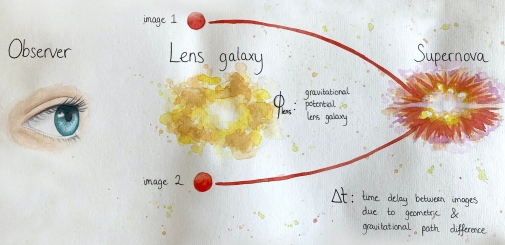 image 1
Observer
Lens galaxy
Supernova
ϕlens: gravitational
potential
lens galaxy
image 2
Δt: time delay between images
due to geometric &
gravitational path difference